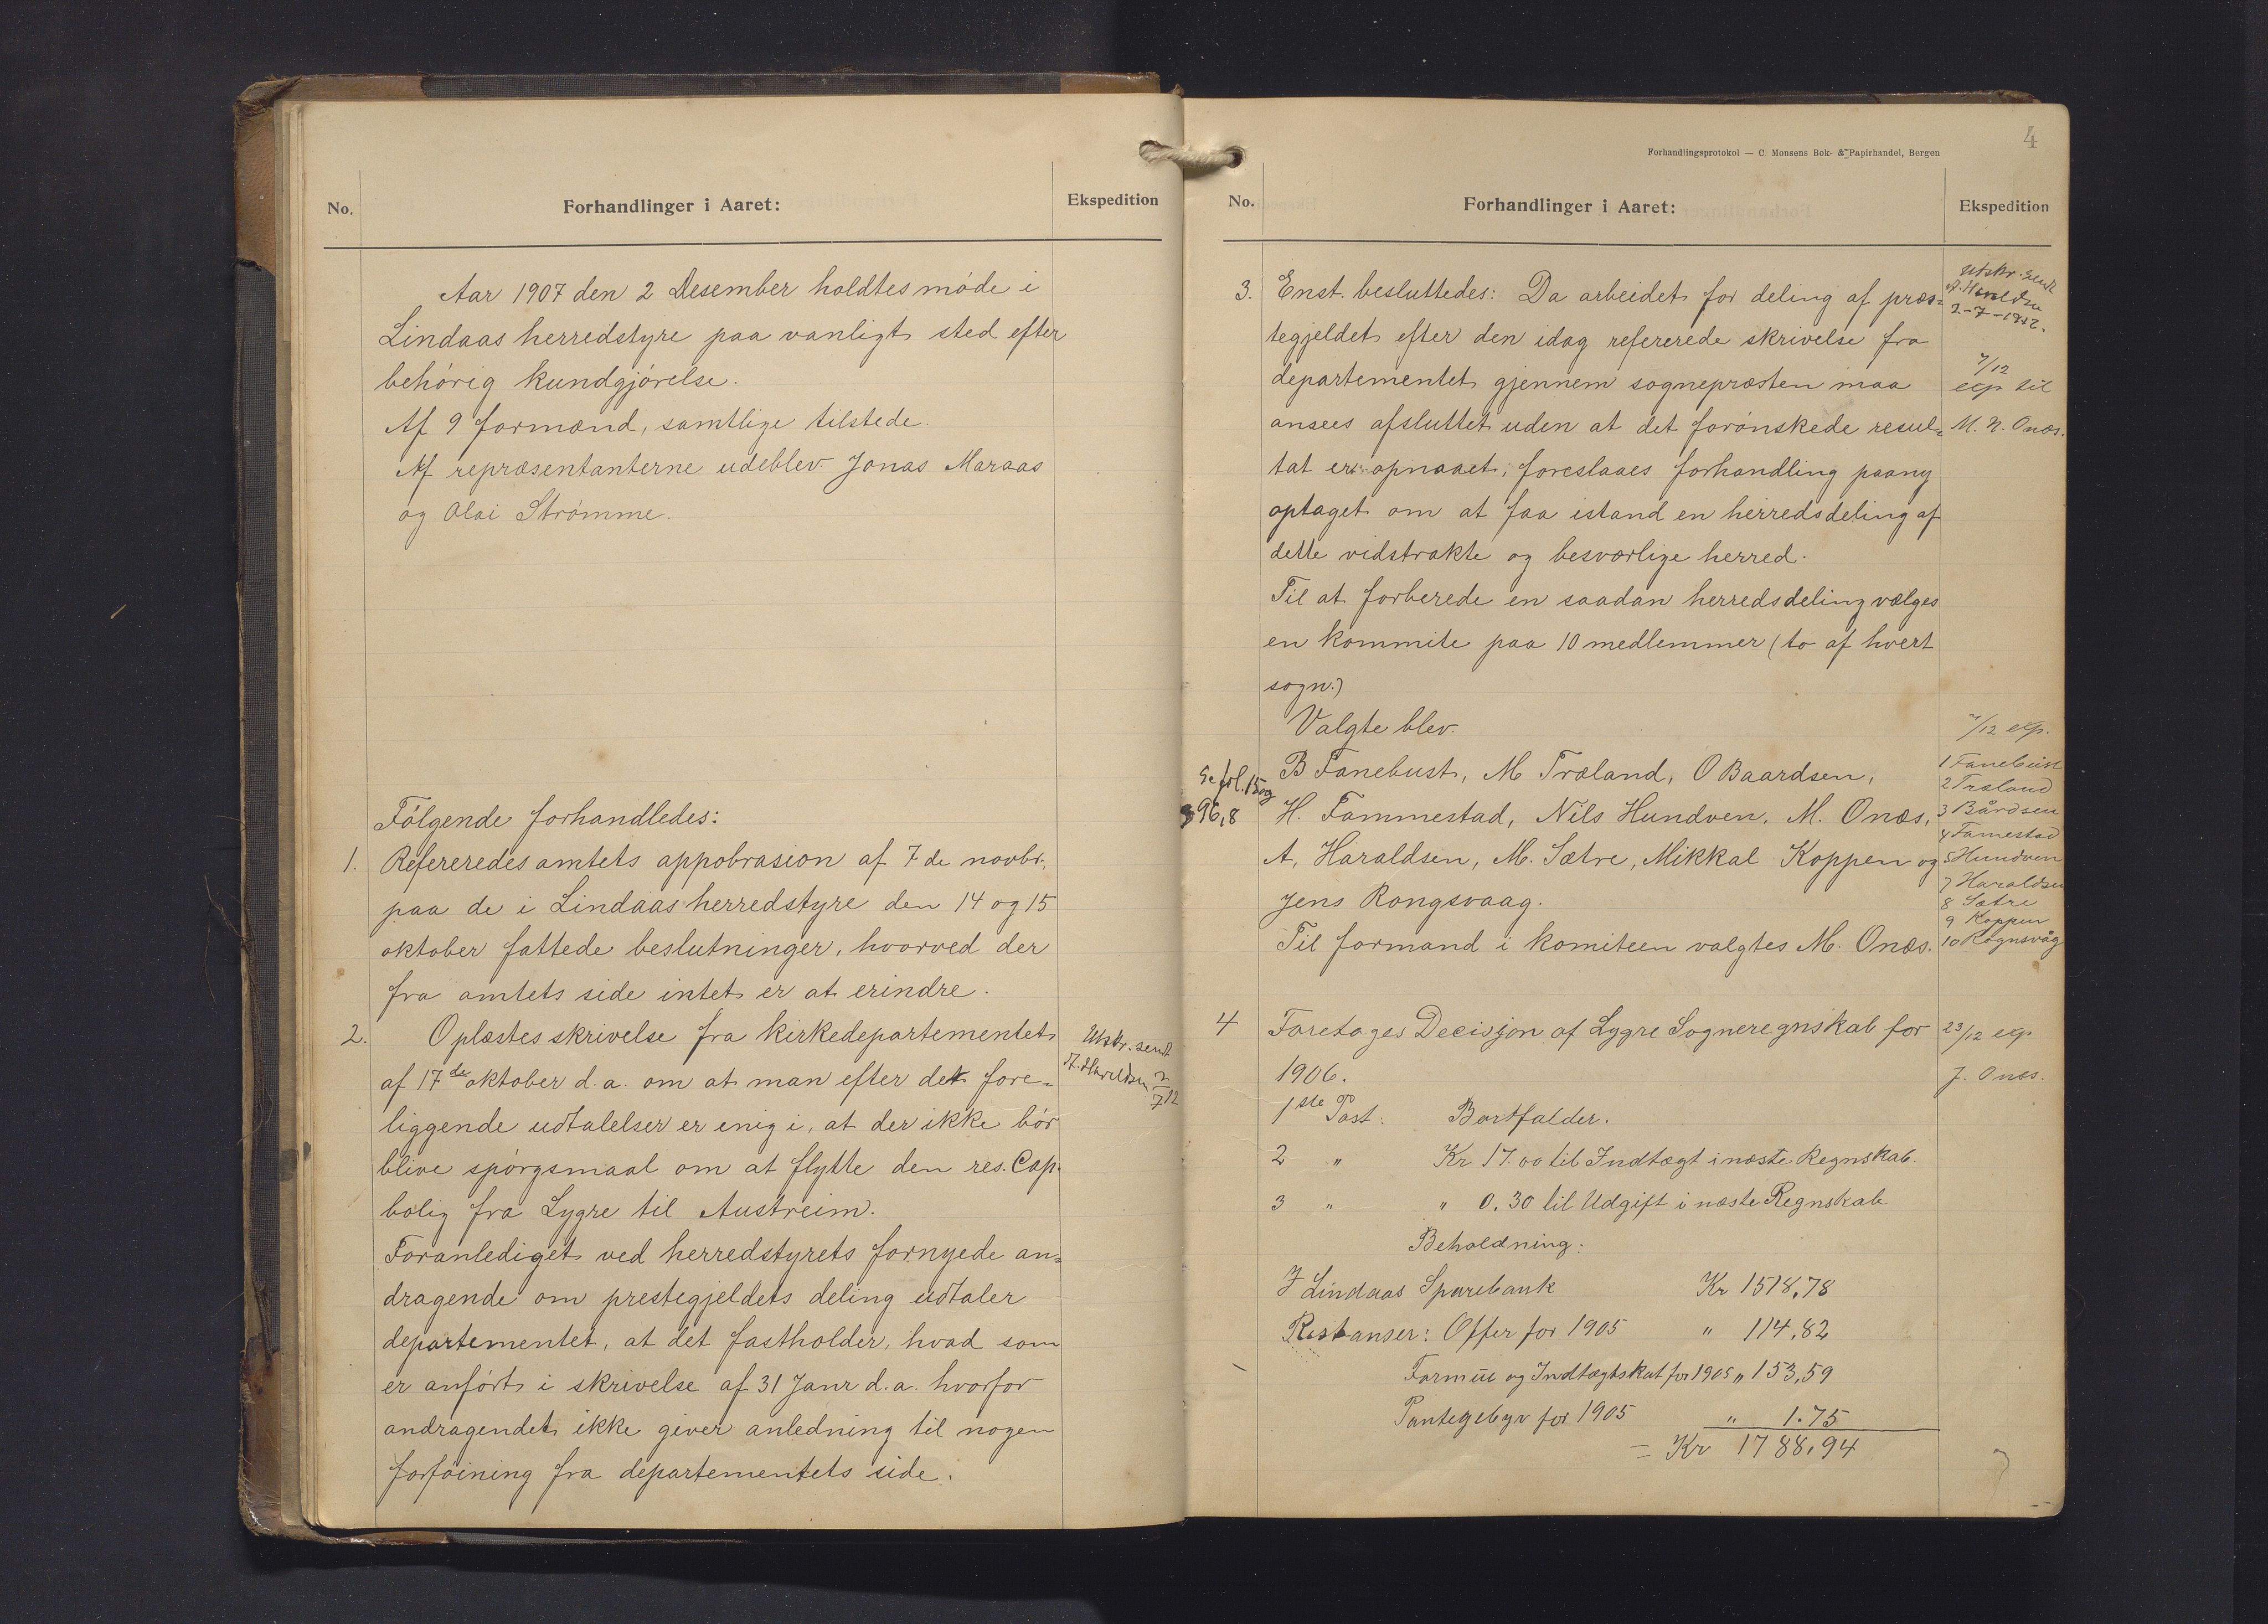 No.
Forhandlinger i Aaret:
Ekspedition
Aar 1907 den 2 Desember holdtes møde i
Lindaas herredstyre paa vanligt sted efter
behørig kundgjørelse.
Af 9 formænd, samtlige tilstede.
Af repræsentanterne udeblev Jonas Maraas
og Olai Strømme.
Følgende forhandledes:
1. Refereredes amtets appobrasion af 7de novbr.
paa de i Lindaas herredstyre den 14 og 15
oktober fattede beslutninger, hvorved der
fra amtets side intet er at erindre.
2. Oplæstes skrivelse fra kirkedepartementet
Utskr. sendt
af 17de oktober d.a. om at man efter det fore=
A. Haraldsen 2/7 12
liggende udtalelser er enig i, at der ikke bør
blive spørgsmaal om at flytte den res. Cap.
bolig fra Lygre til Austreim.
Foranlediget ved herredstyrets fornyede an=
dragende om prestegjeldets deling udtaler
departementet, at det fastholder, hvad som
er anført i skrivelse af 31 Janr d.a. hvorfor
andragendet ikke giver anledning til nogen
forføining fra departementets side.
4
Forhandlingsprotokol — C. Monsens Bok- & Papirhandel, Bergen
No.
Forhandlinger i Aaret:
Ekspedition
3. Enst. besluttedes: Da arbeidet for deling af præs=
Utskr. sendt
A. Haraldsen
2-7-1912.
tegjeldet efter den idag refererede skrivelse fra
departementet gjennem sognepræsten maa
7/12
exp til
ansees afsluttet uden at det forønskede resul=
M. N. Onæs.
tat er opnaaet, foreslaaes forhandling paany
optaget om at faa istand en herredsdeling af
dette vidstrakte og besværlige herred.
Til at forberede en saadan herredsdeling vælges
en kommite paa 10 medlemmer (to af hvert
sogn.)
Valgte blev.
7/12 exp.
Se fol. 15 og
96,8
B Fanebust, M Træland, O Baardsen,
H. Fammestad, Nils Hundven, M. Onæs,
A. Haraldsen, M. Sætre, Mikkal Koppen og
Jens Rongsvaag.
Til formand i komiteen valgtes M. Onæs.
1 Fanebust
2 Træland
3 Bårdsen
4 Famestad
5 Hundven
7 Haraldsen
8 Sætre
9 Koppen
10 Rognsvåg
4 Foretages Decisjon af Lygre Sogneregnskab for
23/12 exp
1906.
J. Onæs.
1ste Post: Bortfalder.
2 " Kr 17.00 til Indtægt i næste Regnskab.
3 " " 0.30 til Udgift i næste Regnskab
Beholdning:
I Lindaas Sparebank Kr 1518,78
Restanser: Offer for 1905 " 114,82
Formue og Indtægtskat for 1905 " 153,59
Pantegebyr for 1905 " 1.75
= Kr 1788,94